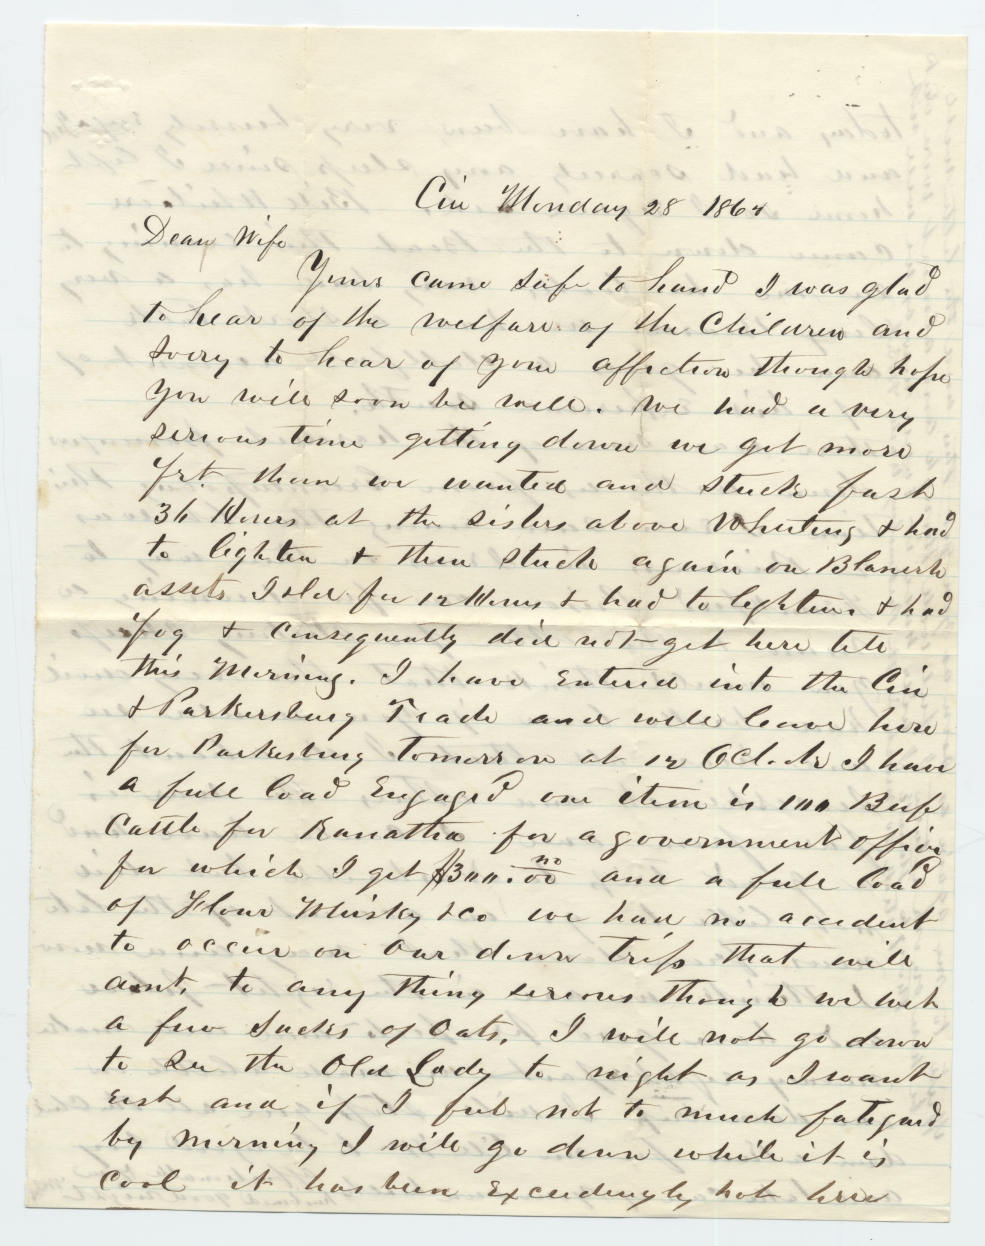 Cin Monday 28 1864
Dear Wife
Yours came safe to hand I was glad
to hear of the welfare of the Children and
sorry to hear of your affection though hope
you will soon be well. we had a very
serious time getting down we got more
frt. than we wanted and stuck fast
36 Hours at the sisters above Wheeling & had
to lighten & then stuck again on
Island for 12 Hours & had to lighten & had
fog & consequently did not get here till
this Morning. I have Entered into the Cin
& Parkersburg Trade and will leave here
for Parkersburg tomorrow at 12 OClock I have
a full load Engaged one item is 100 Beef
Cattle for Kanawha for a government officer
for which I get $300.00 and a full load
of Flour Whisky &co we had no accident
to occur on our down trip that will
amt. to any thing serious though we wet
a few sacks of Oats, I will not go down
to see the Old Lady to night as I want
rest and if I feel not to much fatigued
by morning I will go down while it is
cool it has been Exceedingly hot here